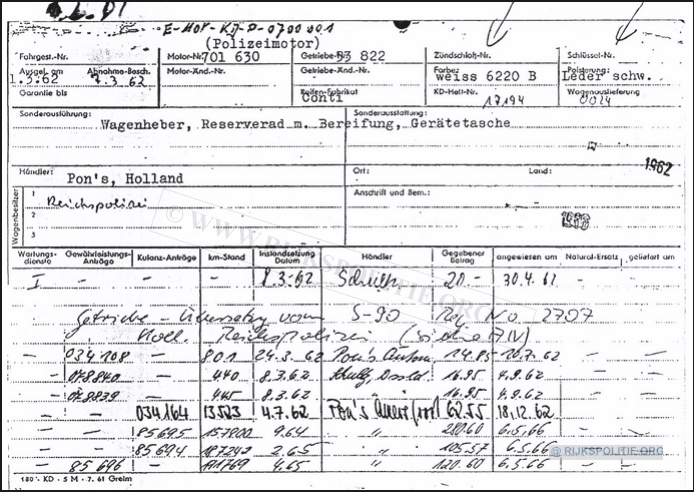 E-Mot-Kß-P-0700 001
(Polizeimotor)
Fahrgest.-Nr. Motor-Nr. 701 630 Getriebe-Nr. 53 822 Zündschloß-Nr. Schlüssel-Nr.
Ausgel. am 1.3.62 Abnahme-Besch. 7.3.62 Motor-Änd.-Nr. Getriebe-Änd.-Nr. Farbe: weiss 6220 B Polsterung: Leder schw.
Garantie bis Reifen-Fabrikat Conti KD-Heft-Nr. 17194 Wagenauslieferung 0024
Sonderausführung: Sonderausstattung:
Wagenheber, Reserverad m. Bereifung, Gerätetasche
Händler: Pon's, Holland Ort: Land: 1962
Wagenbesitzer 1 Reichspolizei Anschrift und Bem.:
2
3
© WWW.RIJKSPOLITIE.ORG
Wartungsdienste Gewährleistungs-Anträge Kulanz-Anträge km-Stand Instandsetzung Datum Händler Gegebener Betrag angewiesen am Natural-Ersatz geliefert am
I - - - 8.3.62 20.- 30.4.62
Getriebe - Übersetzung vom S-90 No 2707
Holl. Reichspolizei (siehe A.IV)
- 034108 - 801 24.3.62 Pon's Autom. 14.85 20.7.62 - -
- 048840 - 440 8.3.62 16.95 4.9.62 - -
- 048839 - 445 8.3.62 " 16.95 4.9.62 - -
- - 034164 13523 4.7.62 Pon's 62.55 18.12.62 - -
- 85695 157800 9.64 " 280.60 6.5.66 -
- 85694 187242 2.65 " 105.57 6.5.66
- 85696 - 191769 4.65 " 120.60 6.5.66 - -
@ RIJKSPOLITIE.ORG
180% KD - 5 M - 7. 61 Greim